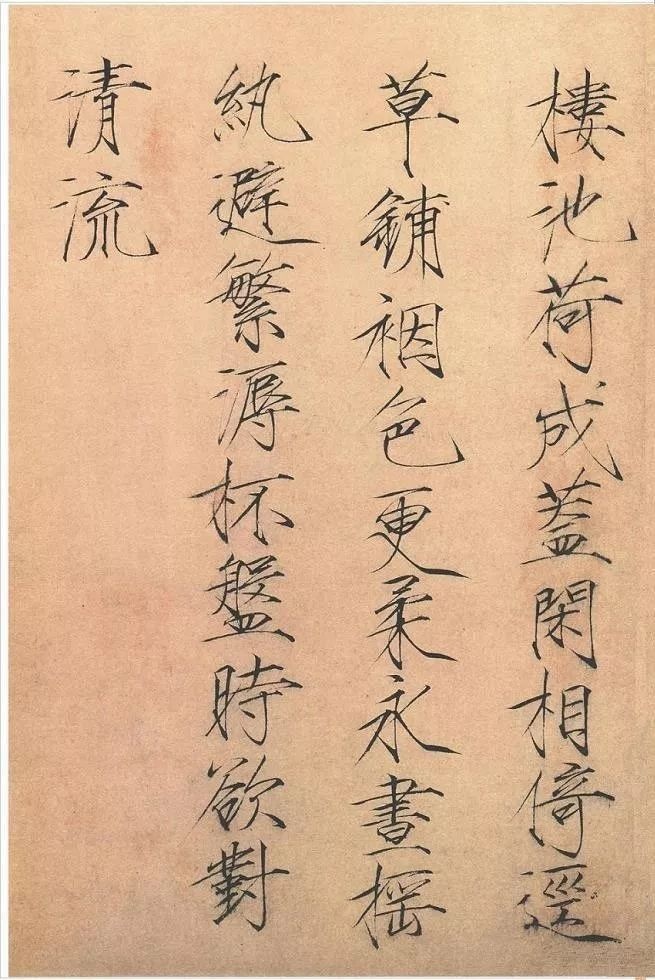 樓池荷成蓋閑相倚逕
草鋪裀色更柔永晝搖
紈避繁溽杯盤時欲對
清流